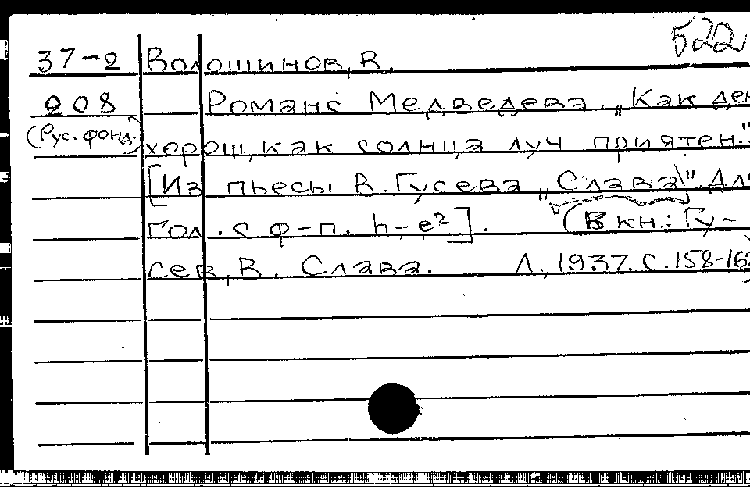 522
37-2 Волошинов, В.
208 Романс Медведева „Как ден
(Рус. фонд.) хорош, как солнца луч приятен."
[Из пьесы В. Гусева „Слава" Дл
гол. с ф-п. h-e²]. (В кн.: Гу-
сев, В. Слава. Л., 1937. С. 158-162